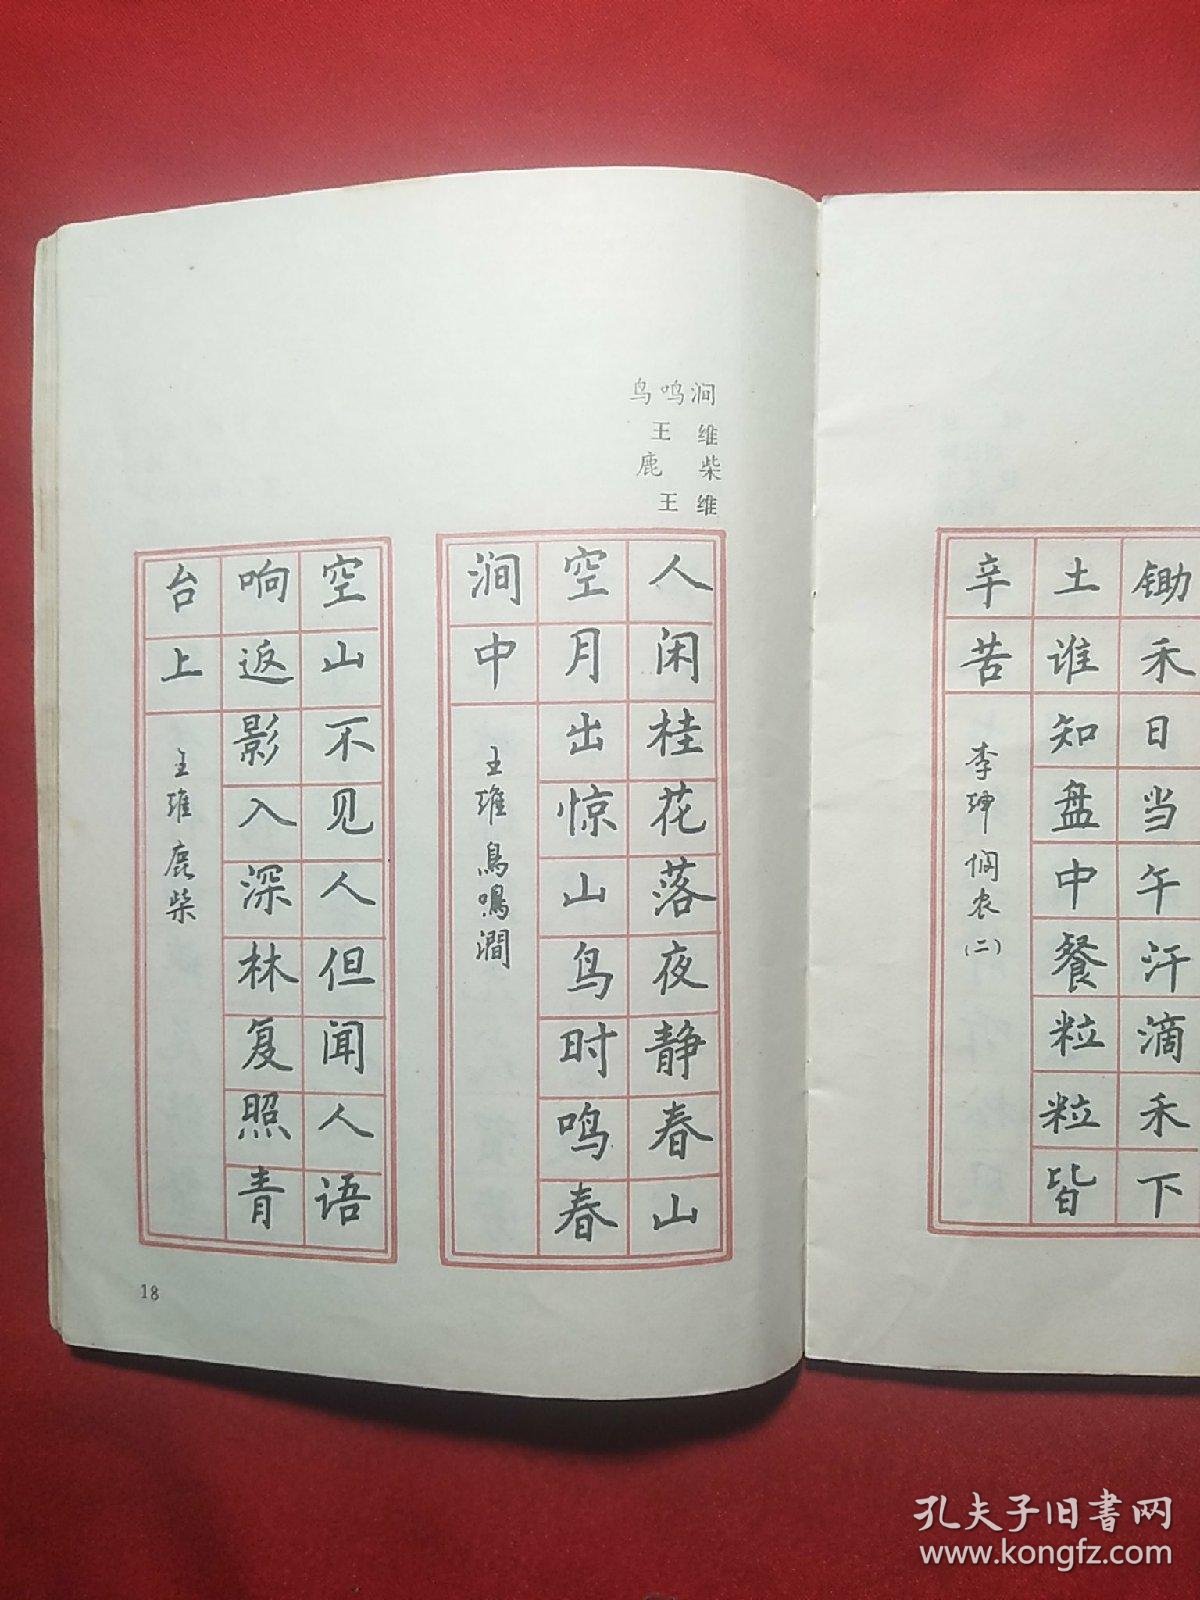 鸟鸣涧
王 维
鹿 柴
王 维
人闲桂花落夜静春山
空月出惊山鸟时鸣春
涧中
王维鳥鳴澗
空山不见人但闻人语
响返影入深林复照青
台上
王维鹿柴
18
锄禾日当午汗滴禾下
土谁知盘中餐粒粒皆
辛苦
李绅悯农(二)
孔夫子旧书网
www.kongfz.com